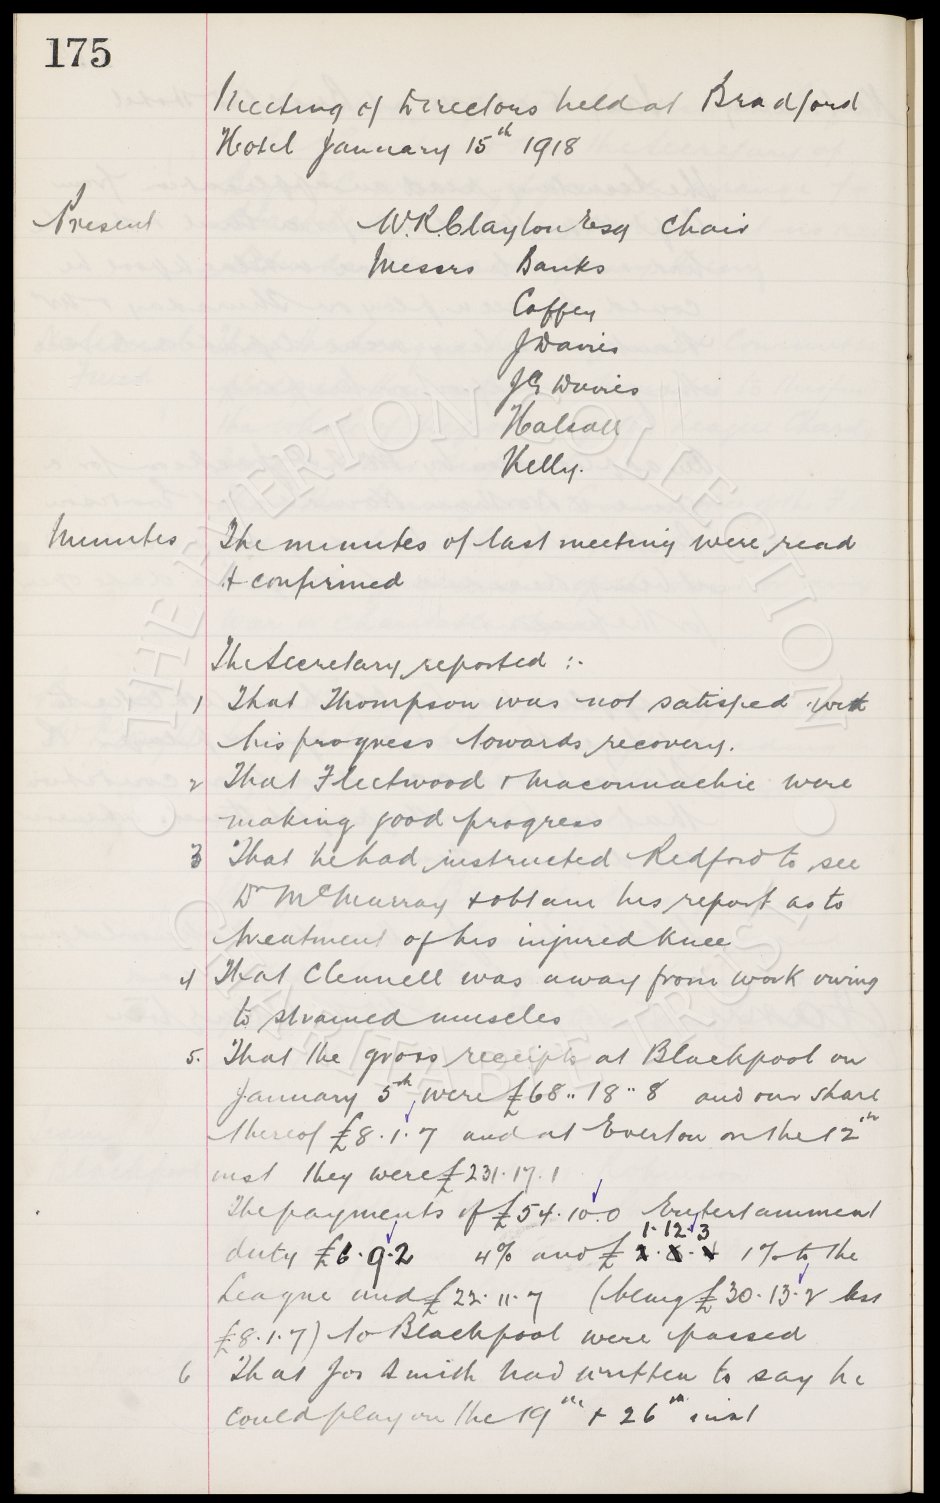 175
Meeting of Directors held at Bradford
Hotel January 15th 1918
Present W.R. Clayton Esq Chair
Messrs Banks
Coffey
J Davies
J G Davies
Halsall
Kelly.
Minutes The minutes of last meeting were read
& confirmed
The Secretary reported :-
1 That Thompson was not satisfied with
his progress towards recovery.
2 That Fleetwood & Maconnachie were
making good progress
3 That he had instructed Redford to see
Dr McMurray & obtain his report as to
treatment of his injured knee
4 That Clennell was away from work owing
to strained muscles
5. That the gross receipts at Blackpool on
January 5th were £68 .. 18 .. 8 and our share
thereof £8.1.7 and at Everton on the 12th
inst they were £231.17.1
The payments of £54.10.0 Entertainment
1.12.3
duty £6.9.2 4% and £ 1% to the
League and £22.11.7 (being £30.13.2 less
£8.1.7) to Blackpool were passed
6 That Jos Smith had written to say he
could play on the 19th & 26th inst
THE EVERTON COLLECTION
CHARITABLE TRUST